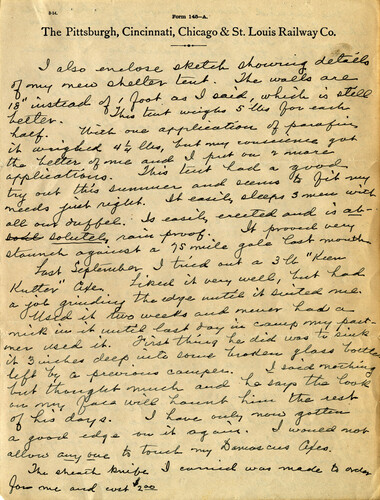 Form 148-A.
The Pittsburgh, Cincinnati, Chicago & St. Louis Railway Co.
I also enclose sketch showing details
of my new shelter tent. The walls are
18" instead of 1 foot as I said, which is still
better. This tent weighs 5 lbs for each
half. With one application of parafin
it weighed 4½ lbs, but my conscience got
the better of me and I put on 2 more
applications. This tent had a good
try out this summer and seems to fit my
needs just right. It easily sleeps 3 men with
all our duffel. Is easily erected and is ab-
solutely rain proof. It proved very
staunch against a 75 mile gale last month
Last September I tried out a 3 lb "Keen
Kutter" Axe. Liked it very well, but had
a job grinding the edge until it suited me.
Used it two weeks and never had a
nick in it until last day in camp my part-
ner used it. First thing he did was to sink
it 3 inches deep into some broken glass bottles
left by a previous camper. I said nothing
but thought much and he says the look
on my face will haunt him the rest
of his days. I have only now gotten
a good edge on it again. I would not
allow any one to touch my Damascus Axes.
The sheath knife I carried was made to order
for me and cost $2.00